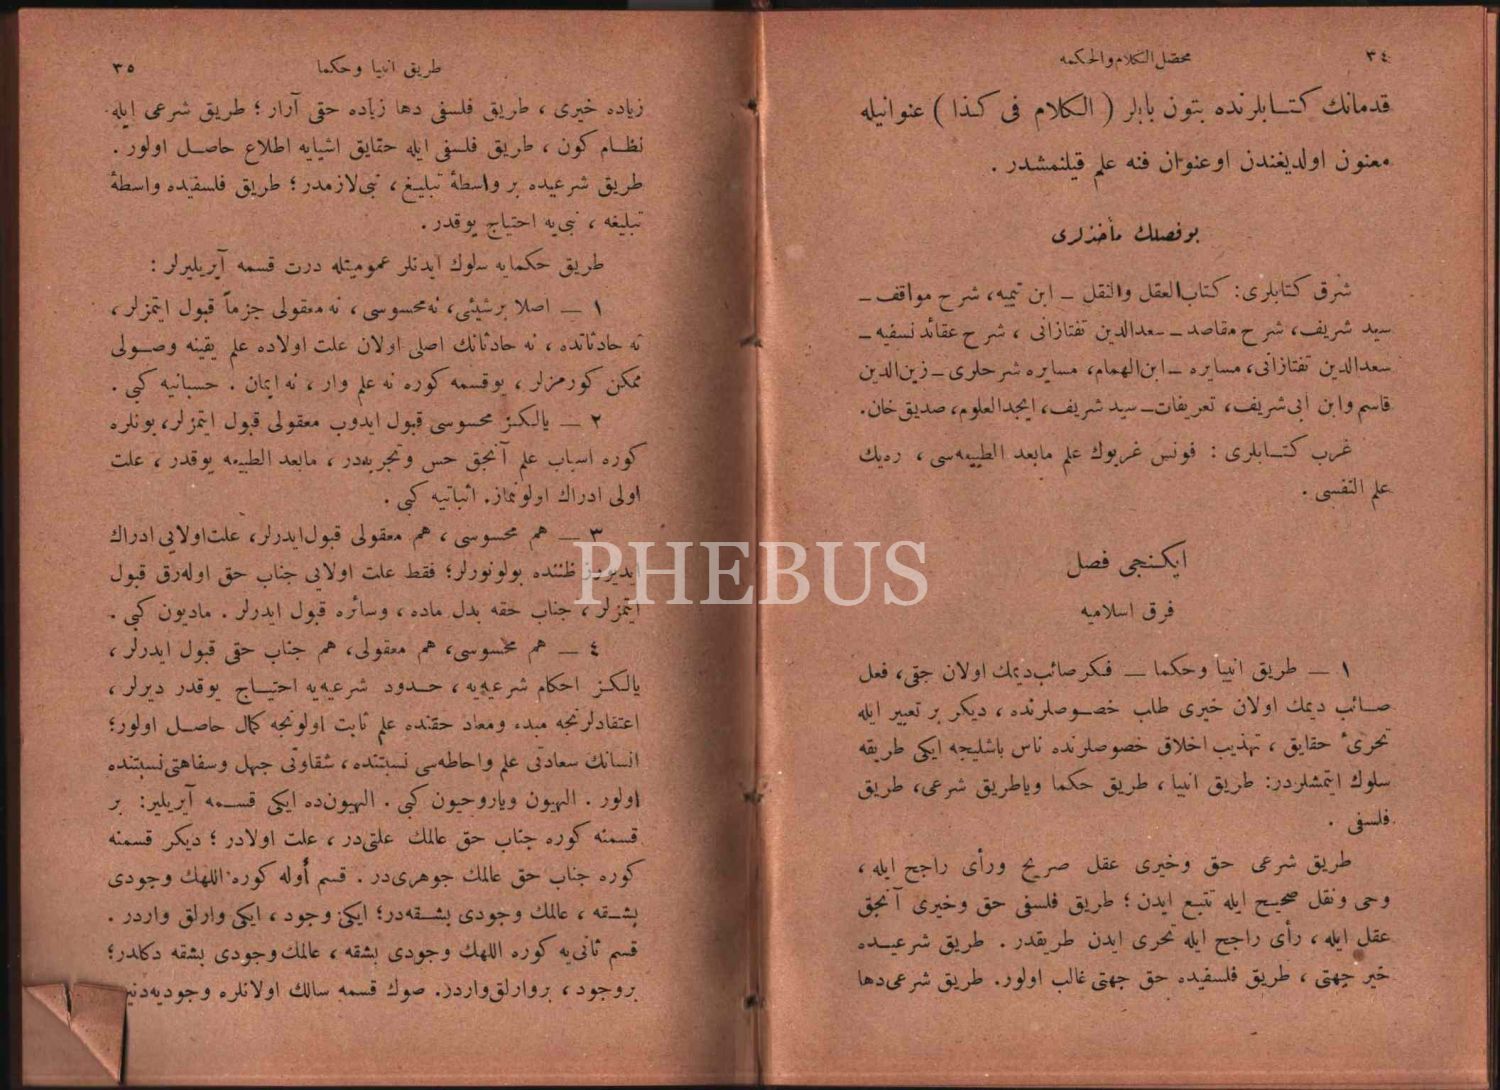 ٣٤
محصل الكلام والحكمه
قدمانك كتابلرنده بتون بابلر ( الكلام فى كذا ) عنوانيله
معنون اولديغندن اوعنوان فنه علم قيلنمشدر .
بوفصلك مأخذلرى
شرق كتابلرى: كتاب العقل والنقل ـ ابن تيميه، شرح مواقف ـ
سيد شريف، شرح مقاصد ـ سعدالدين تفتازانى ، شرح عقائد نسفيه ـ
سعدالدين تفتازانى، مسايره ـ ابن الهمام، مسايره شرحلرى ـ زين الدين
قاسم وابن ابى شريف، تعريفات ـ سيد شريف، ايجدالعلوم، صديق خان.
غرب كتابلرى : فونس غريوك علم مابعد الطبيعه سى ، ره يك
علم النفسى .
ايكنجى فصل
فرق اسلاميه
١ ـ طريق انبيا وحكما ـ فكر صائب ديمك اولان حقى، فعل
صائب ديمك اولان خيرى طلب خصوصلرنده ، ديكر بر تعبير ايله
تحرىٔ حقايق ، تهذيب اخلاق خصوصلرنده ناس باشليجه ايكى طريقه
سلوك ايتمشلردر: طريق انبيا ، طريق حكما وياطريق شرعى، طريق
فلسفى .
طريق شرعى حق وخيرى عقل صريح ورأى راجح ايله ،
وحى ونقل صحيح ايله تتبع ايدن ؛ طريق فلسفى حق وخيرى آنجق
عقل ايله ، رأى راجح ايله تحرى ايدن طريقدر . طريق شرعيده
خير جهتى ، طريق فلسفيده حق جهتى غالب اولور. طريق شرعى دها
طريق انبيا وحكما
٣٥
زياده خيرى ، طريق فلسفى دها زياده حقى آرار ؛ طريق شرعى ايله
نظام كون ، طريق فلسفى ايله حقايق اشيايه اطلاع حاصل اولور .
طريق شرعيده بر واسطهٔ تبليغ ، نبى لازمدر ؛ طريق فلسفيده واسطهٔ
تبليغه ، نبى يه احتياج يوقدر .
طريق حكمايه سلوك ايدنلر عموميتله درت قسمه آيريليرلر :
١ ـ اصلا برشيئى، نه محسوسى ، نه معقولى جزماً قبول ايتمزلر،
نه حادثاتده ، نه حادثاتك اصلى اولان علت اولاده علم يقينه وصولى
ممكن كورمزلر ، بوقسمه كوره نه علم وار ، نه ايمان . حسبانيه كبى .
٢ ـ يالكز محسوسى قبول ايدوب معقولى قبول ايتمزلر، بونلره
كوره اسباب علم آنجق حس وتجربه در ، مابعد الطبيعه يوقدر ، علت
اولى ادراك اولونماز. اثباتيه كبى .
٣ ـ هم محسوسى ، هم معقولى قبول ايدرلر، علت اولايى ادراك
ايديورز ظننده بولونورلر؛ فقط علت اولايى جناب حق اوله رق قبول
ايتمزلر ، جناب حقه بدل ماده ، وسائره قبول ايدرلر . ماديون كبى .
٤ ـ هم محسوسى، هم معقولى، هم جناب حقى قبول ايدرلر ،
يالكز احكام شرعيه يه ، حدود شرعيه يه احتياج يوقدر ديرلر ،
اعتقادلرنجه مبدء ومعاد حقنده علم ثابت اولونجه كمال حاصل اولور؛
انسانك سعادتى علم واحاطه سى نسبتنده ، شقاوتى جهل وسفاهتى نسبتنده
اولور . الهيون وياروحيون كبى . الهيون ده ايكى قسمه آيريلير: بر
قسمنه كوره جناب حق عالمك علتى در ، علت اولادر ؛ ديكر قسمنه
كوره جناب حق عالمك جوهرى در . قسم أوله كوره اللهك وجودى
بشقه ، عالمك وجودى بشقه در؛ ايكى وجود ، ايكى وارلق واردر .
قسم ثانى يه كوره اللهك وجودى بشقه ، عالمك وجودى بشقه دكلدر؛
بر وجود ، بر وارلق واردر. صوك قسمه سالك اولانلره وجوديه دنير
PHEBUS